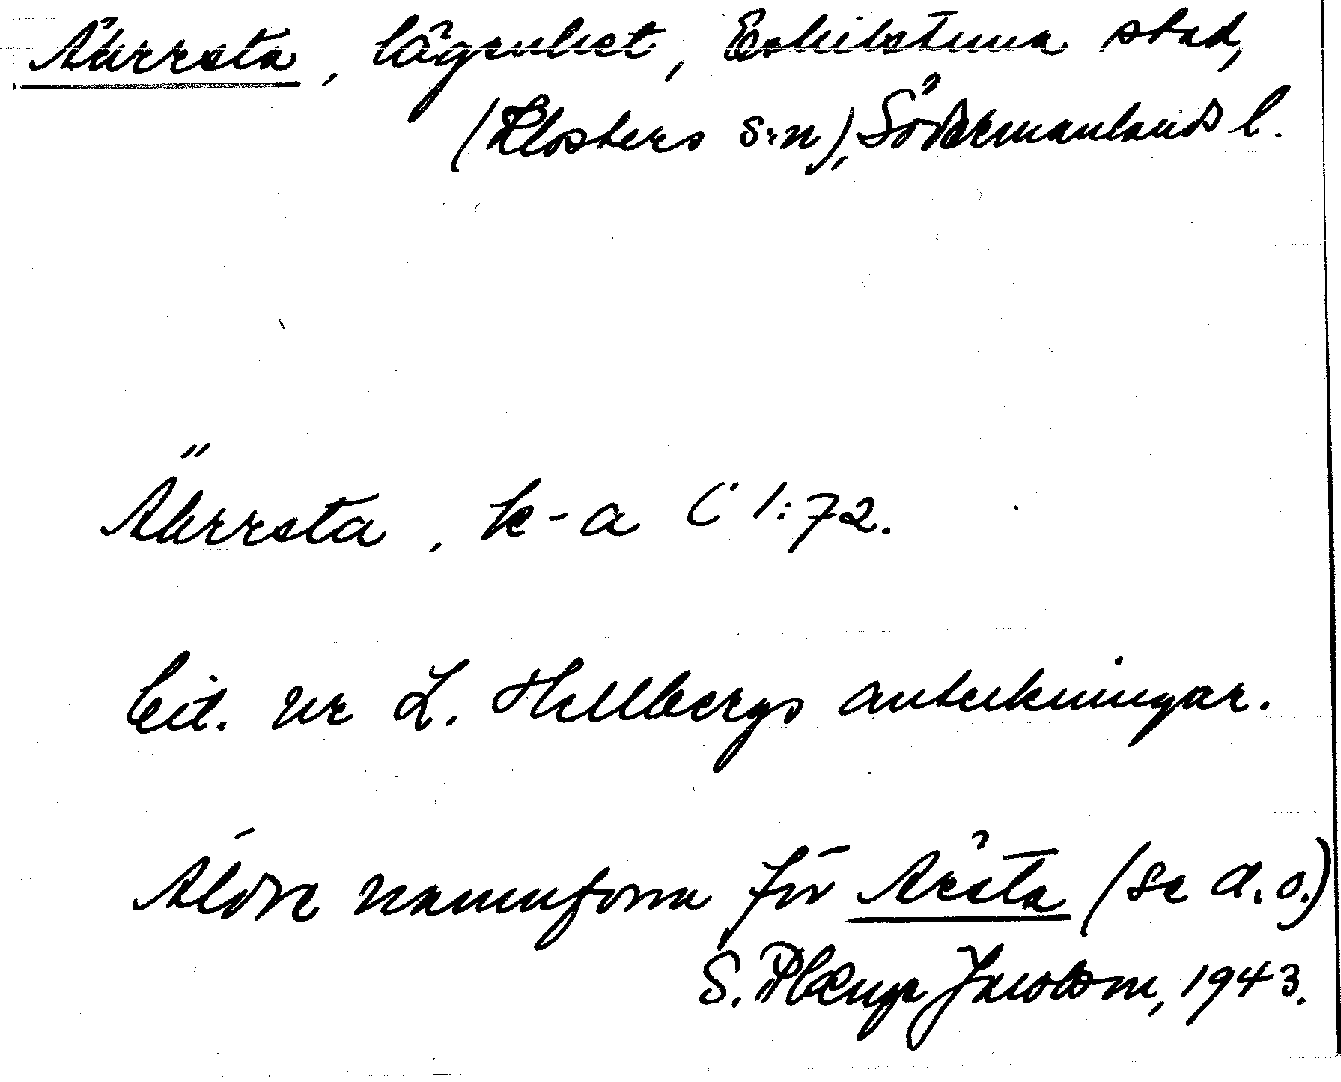 Åkersta, lägenhet, Eskilstuna stad,
(Klosters s:n), Södermanlands l.
Åkersta, k-a C 1:72.
Cit. ur L. Hellbergs anteckningar.
Äldre namnform för Årsta (se d. o.)
S. Plænge Jacobson, 1943.